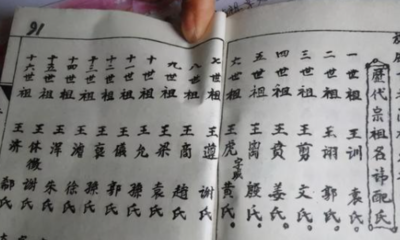 歷代宗祖名諱配氏
一世祖 王訓 袁氏。
二世祖 王翊 郭氏。
三世祖 王剪 文氏。
四世祖 王賁 姜氏。
五世祖 王 氏。
六世祖 王虎 黃氏。
七世祖 王遵 謝氏
八世祖 王商 趙氏
九世祖 王梁 袁氏
十世祖 王允 孫氏
十一世祖 王儀 郭氏
十二世祖 王 孫氏
十三世祖 王濬 徐氏
十四世祖 王渾 朱氏
十五世祖 王休徵 謝氏
十六世祖 王濟 氏
91